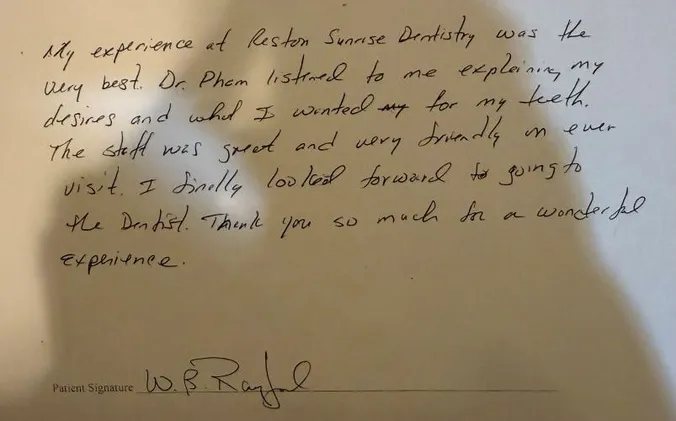 My experience at Reston Sunrise Dentistry was the
very best. Dr. Pham listened to me explaining my
desires and what I wanted my for my teeth.
The staff was great and very friendly on ever
visit. I finally looked forward to going to
the Dentist. Thank you so much for a wonderful
Experience.
Patient Signature W. B.